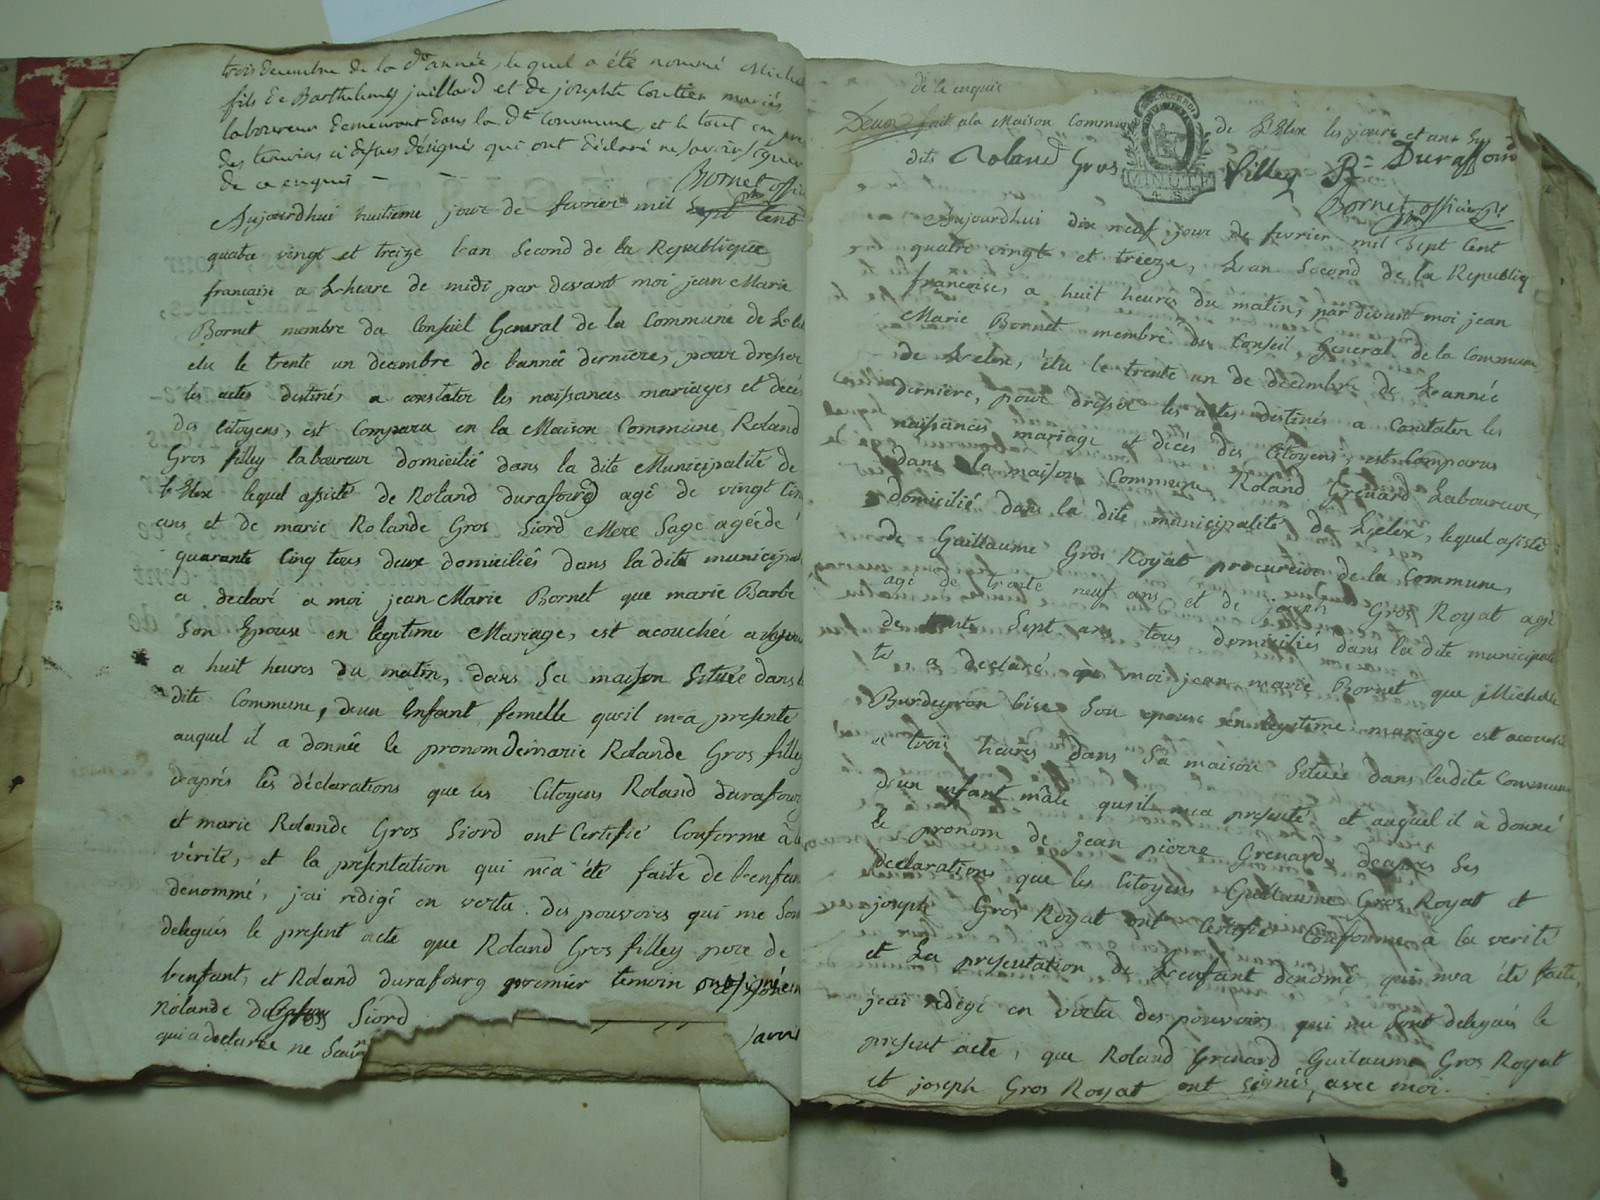 trois decembre de la de année, lequel a été nommé Michel
fils de Barthelemy juillard et de josephte Coutier mariés
laboureur demeurant dans la dte Commune, et le tout en pre
des temoins ci dessus désignés qui ont déclaré ne savoir signer
de ce enquis
Bornet offici
Aujourdhui huitieme jour de fevrier mil Sept Cent
quatre vingt et treize l'an Second de la Republique
française a L-heure de midi par devant moi jean Marie
Bornet membre du Conseil General de la Commune de Lele
elu le trente un decembre de l'année derniere, pour dresser
les actes destinés a constater les naissances mariages et décès
des Citoyens, est Comparu en la Maison Commune Roland
Gros filley laboureur domicilié dans la dite Municipalité de
Lelex lequel assisté de Roland durafourg agé de vingt cin
ans et de marie Rolande Gros Siord Mere Sage agée de
quarante Cinq tous deux domiciliés dans la dite municipa
a declaré a moi jean Marie Bornet que marie Barbe
Son Epouse en legitime Mariage, est acouchée
a huit heures du matin, dans Sa maison Située dans l
dite Commune, d'eun Enfant femelle qu'il m'a presenté
auquel il a donnée le pronom de marie Rolande Gros filley
d'aprés les déclarations que les Citoyens Roland durafour
et marie Rolande Gros Siord ont Certifié Conforme à la
vérité, et la presentation qui m'a été faite de l'enfan
denommé, j'ai redigé en vertu des pouvoirs qui me Son
delegués le present acte que Roland Gros filley pere de
l'enfant, et Roland durafourg premier temoin ont signé
Rolande Gros Siord
qui a declaree ne Savoir
de ce enquis
fait a la Maison Commune de Lelex les jours et an
dits Roland Gros filley R= Duraffourd
MINUTE
Bornet officier
Aujourdhui dix neuf jour de fevrier mil Sept Cent
quatre vingt et trieze, L'an Second de la Republiq
françoise, a huit heures du matin, par devant moi jean
Marie Bornet membre du Conseil General de la Commune
de Lelex, élu le trente un de decembre de L'année
derniere, pour dresser les actes destinés a constater les
naissances mariage et décés des Citoyens, est Comparus
dans la maison Commune Roland Grenard Laboureur,
domicilié dans la dite municipalité de Lelex, lequel assisté
de Guillaume Gros Royat procureur de la Commune,
agé de trante neuf ans et de joseph Gros Royat agé
de Sept ans tous domiciliés dans la dite municipali
té, a declaré a moi jean marie Bornet que Michelle
Burdeyron bise Son epouse en legitime mariage est acouchée
a trois heures dans Sa maison Située dans ladite Commune
d'un enfant mâle qu'il m'a presenté et auquel il a donné
le pronom de jean pierre Grenard deaprès les
declarations que les Citoyens Guillaume Gros Royat et
joseph Gros Royat ont Certifié Conforme à la verité
et La presentation de L'enfant denomé qui m'a été faite,
j'eai redegé en vertu des pouvoirs qui me Sont delegués le
present acte, que Roland Grenard Guilaume Gros Royat
et joseph Gros Royat ont Signés avec moi.